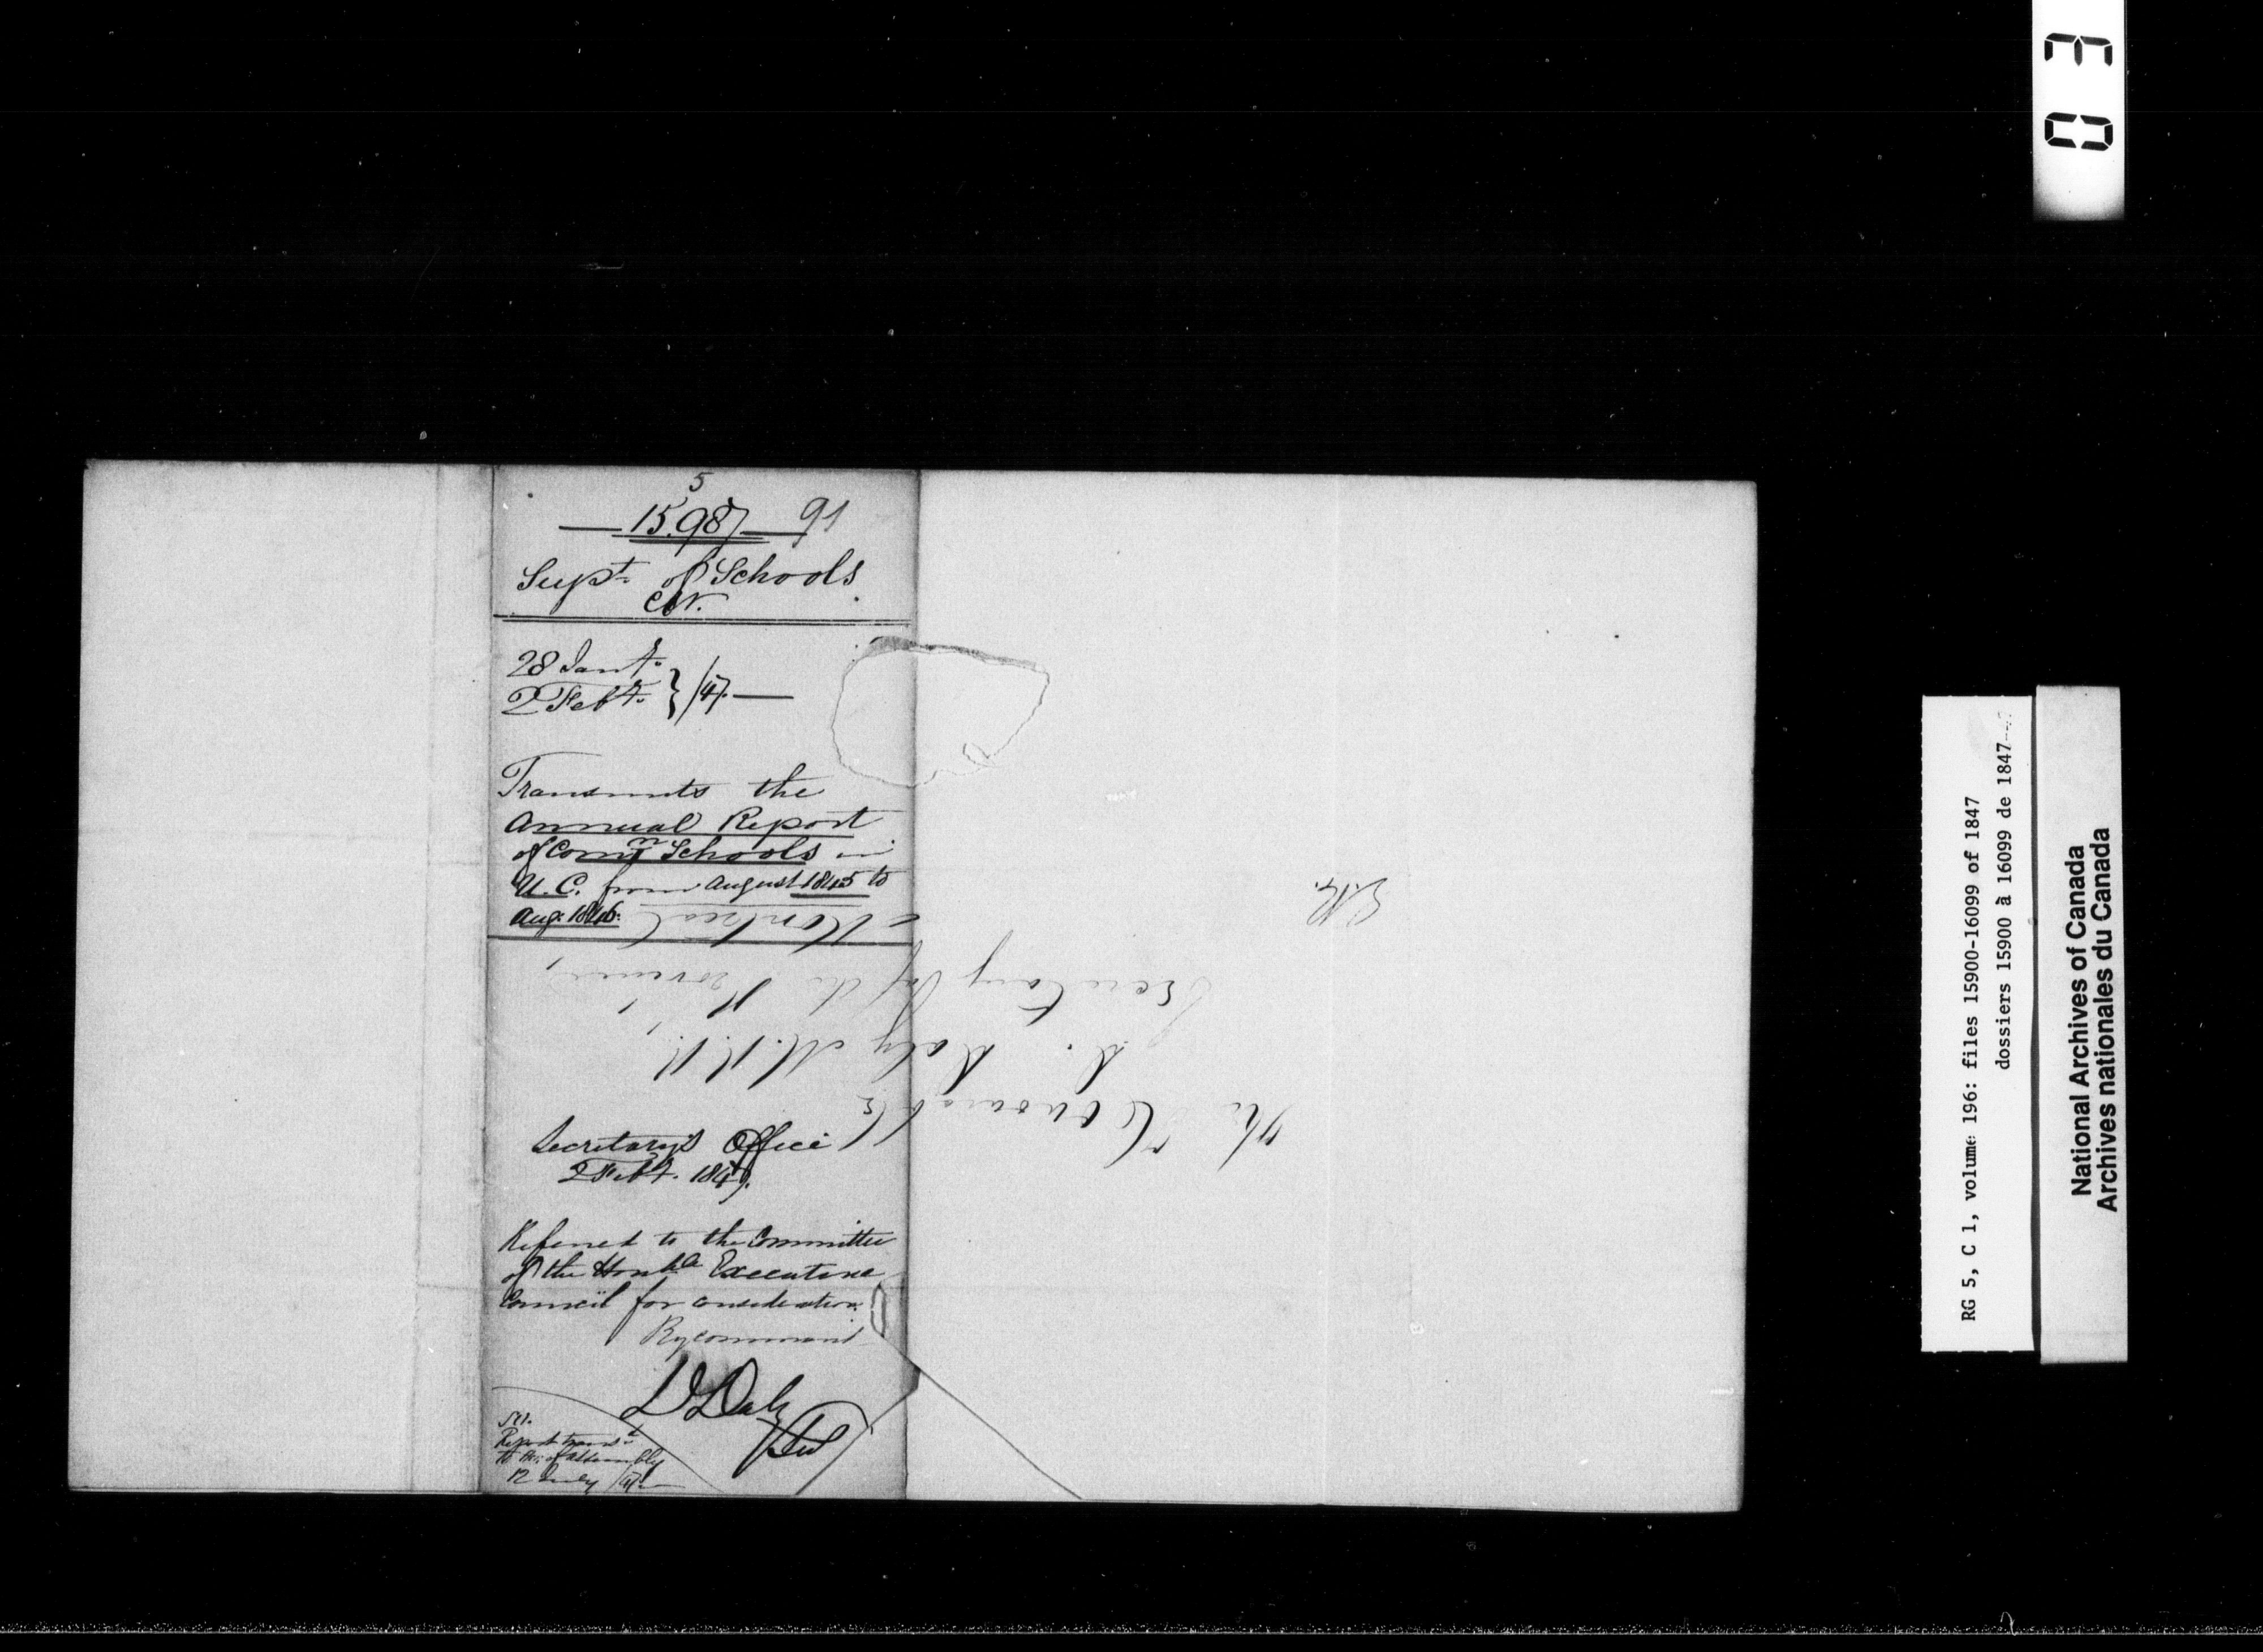 5
15.987 91
Supt. of Schools
C.W.
28 Jany.
2 Feby. } /47.
Transmits the
Annual Report
of Comn Schools in
U.C. from August 1845 to
Aug. 1846.
Secretary's Office
2 Feby. 1847.
Referred to the Committee
of the Honble Executive
Council for consideration
By command
D Daly
Sec
Report transd
to Ho: of Assembly
12 July /47
The Honourable
D. Daly M.P.P.
Secretary of the Province,
Montreal
03
RG 5, C 1, volume 196: files 15900-16099 of 1847
dossiers 15900 à 16099 de 1847
National Archives of Canada
Archives nationales du Canada